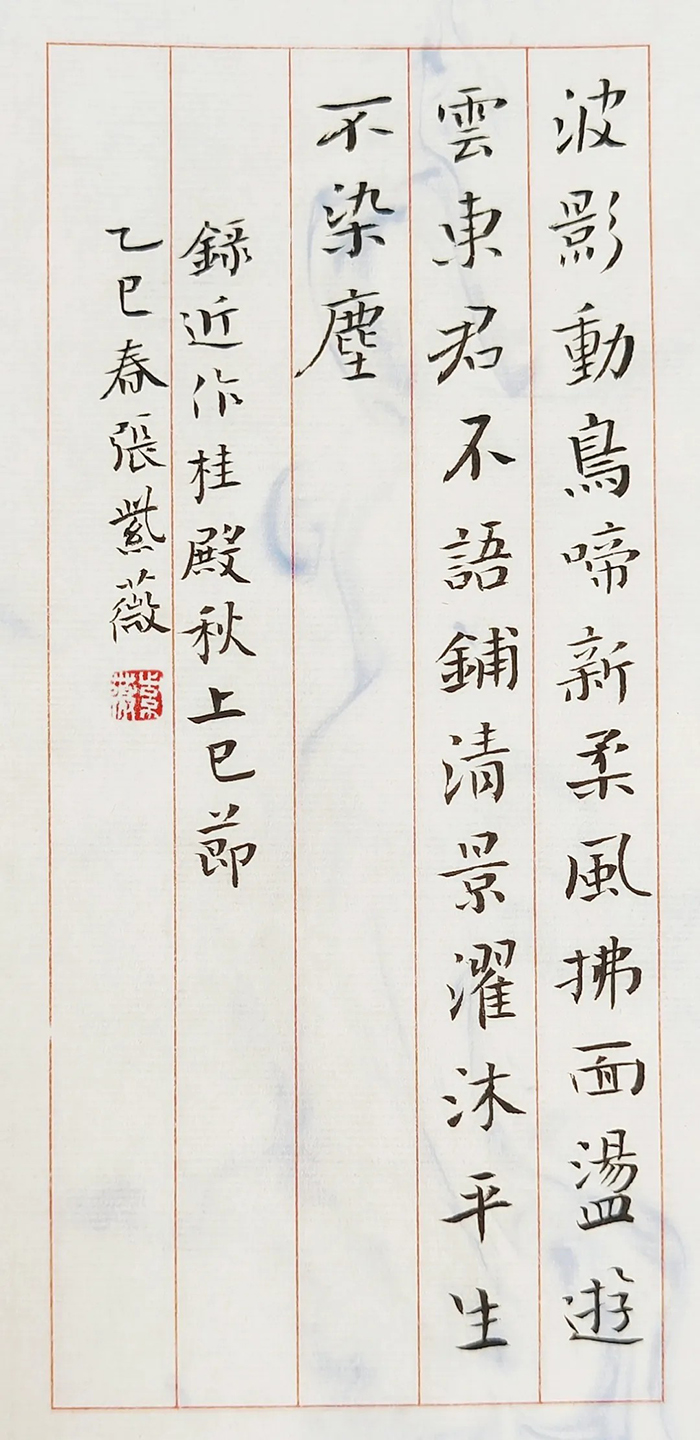 波影動鳥啼新柔風拂面盪遊
雲東君不語鋪清景濯沐平生
不染塵
錄近作桂殿秋上巳節
乙巳春張紫薇